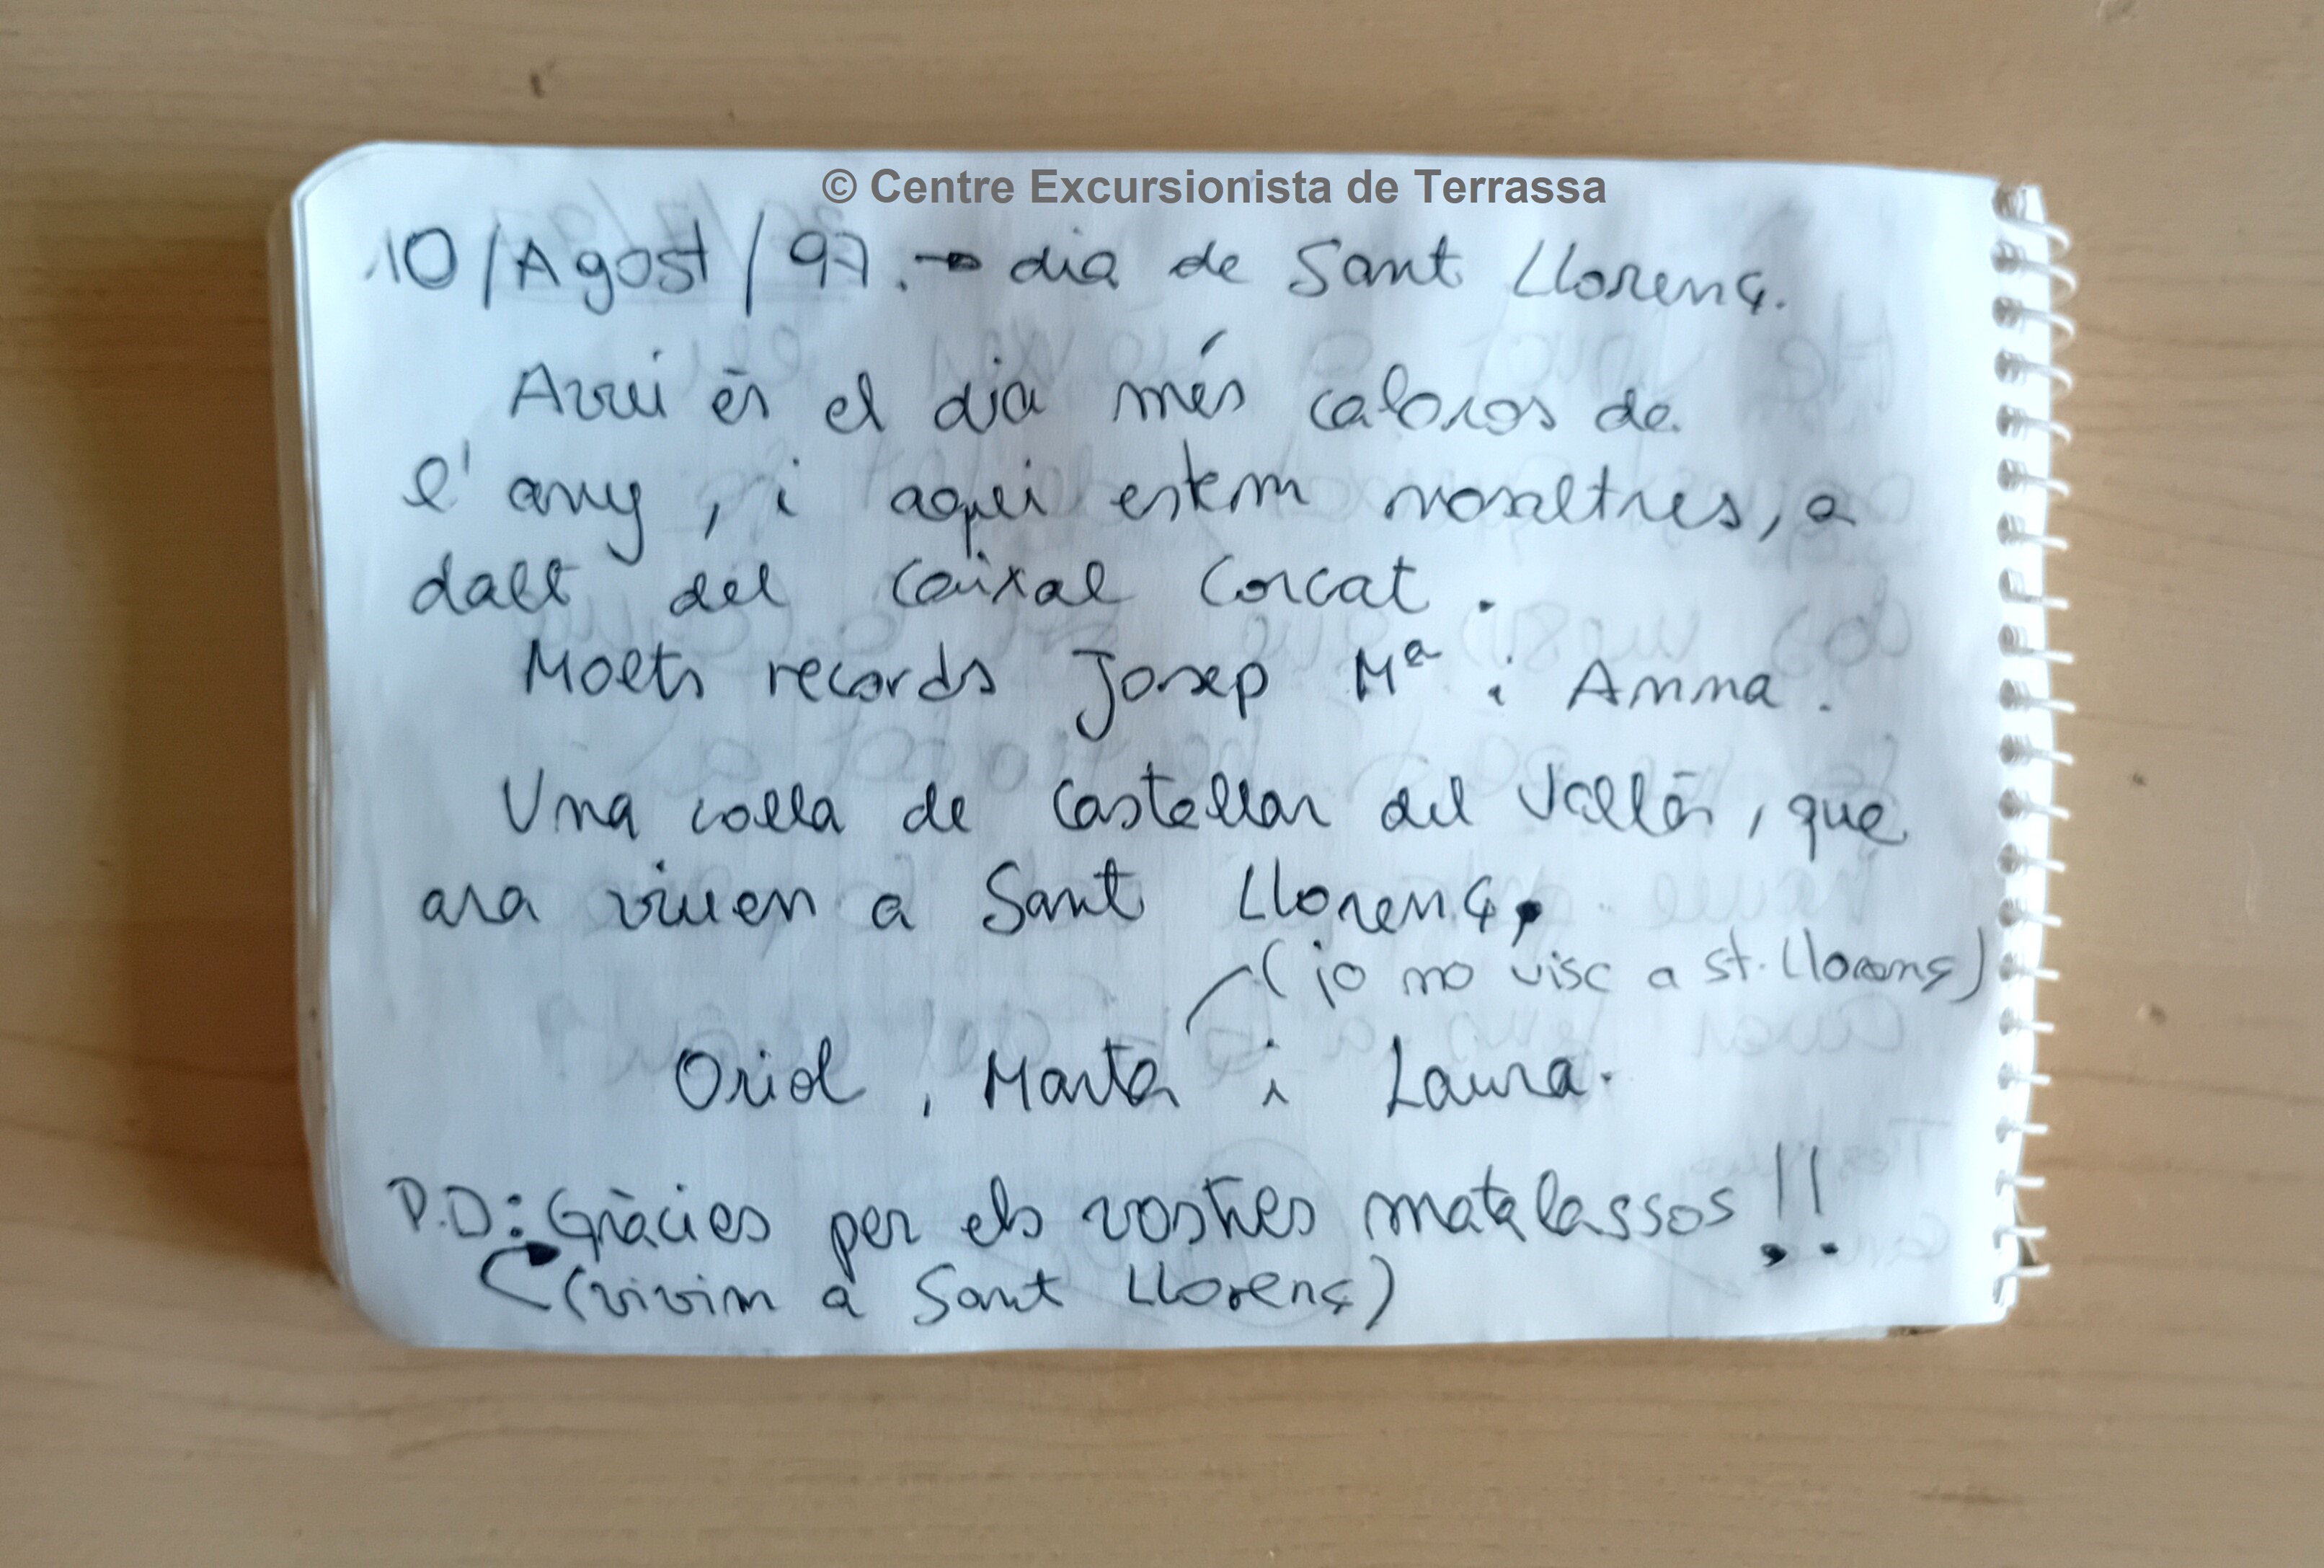 © Centre Excursionista de Terrassa
10/Agost/97. → dia de Sant Llorenç.
Avui és el dia més caloros de
l'any, i aqui estem nosaltres, a
dalt del Caixal Corcat.
Molts records Josep Mª i Anna.
Una colla de Castellar del Vallès, que
ara viuen a Sant Llorenç.
(jo no visc a st. Llorenç)
Oriol, Marta i Laura.
P.D: Gràcies per els vostres matalassos!!
(vivim a Sant Llorenç)